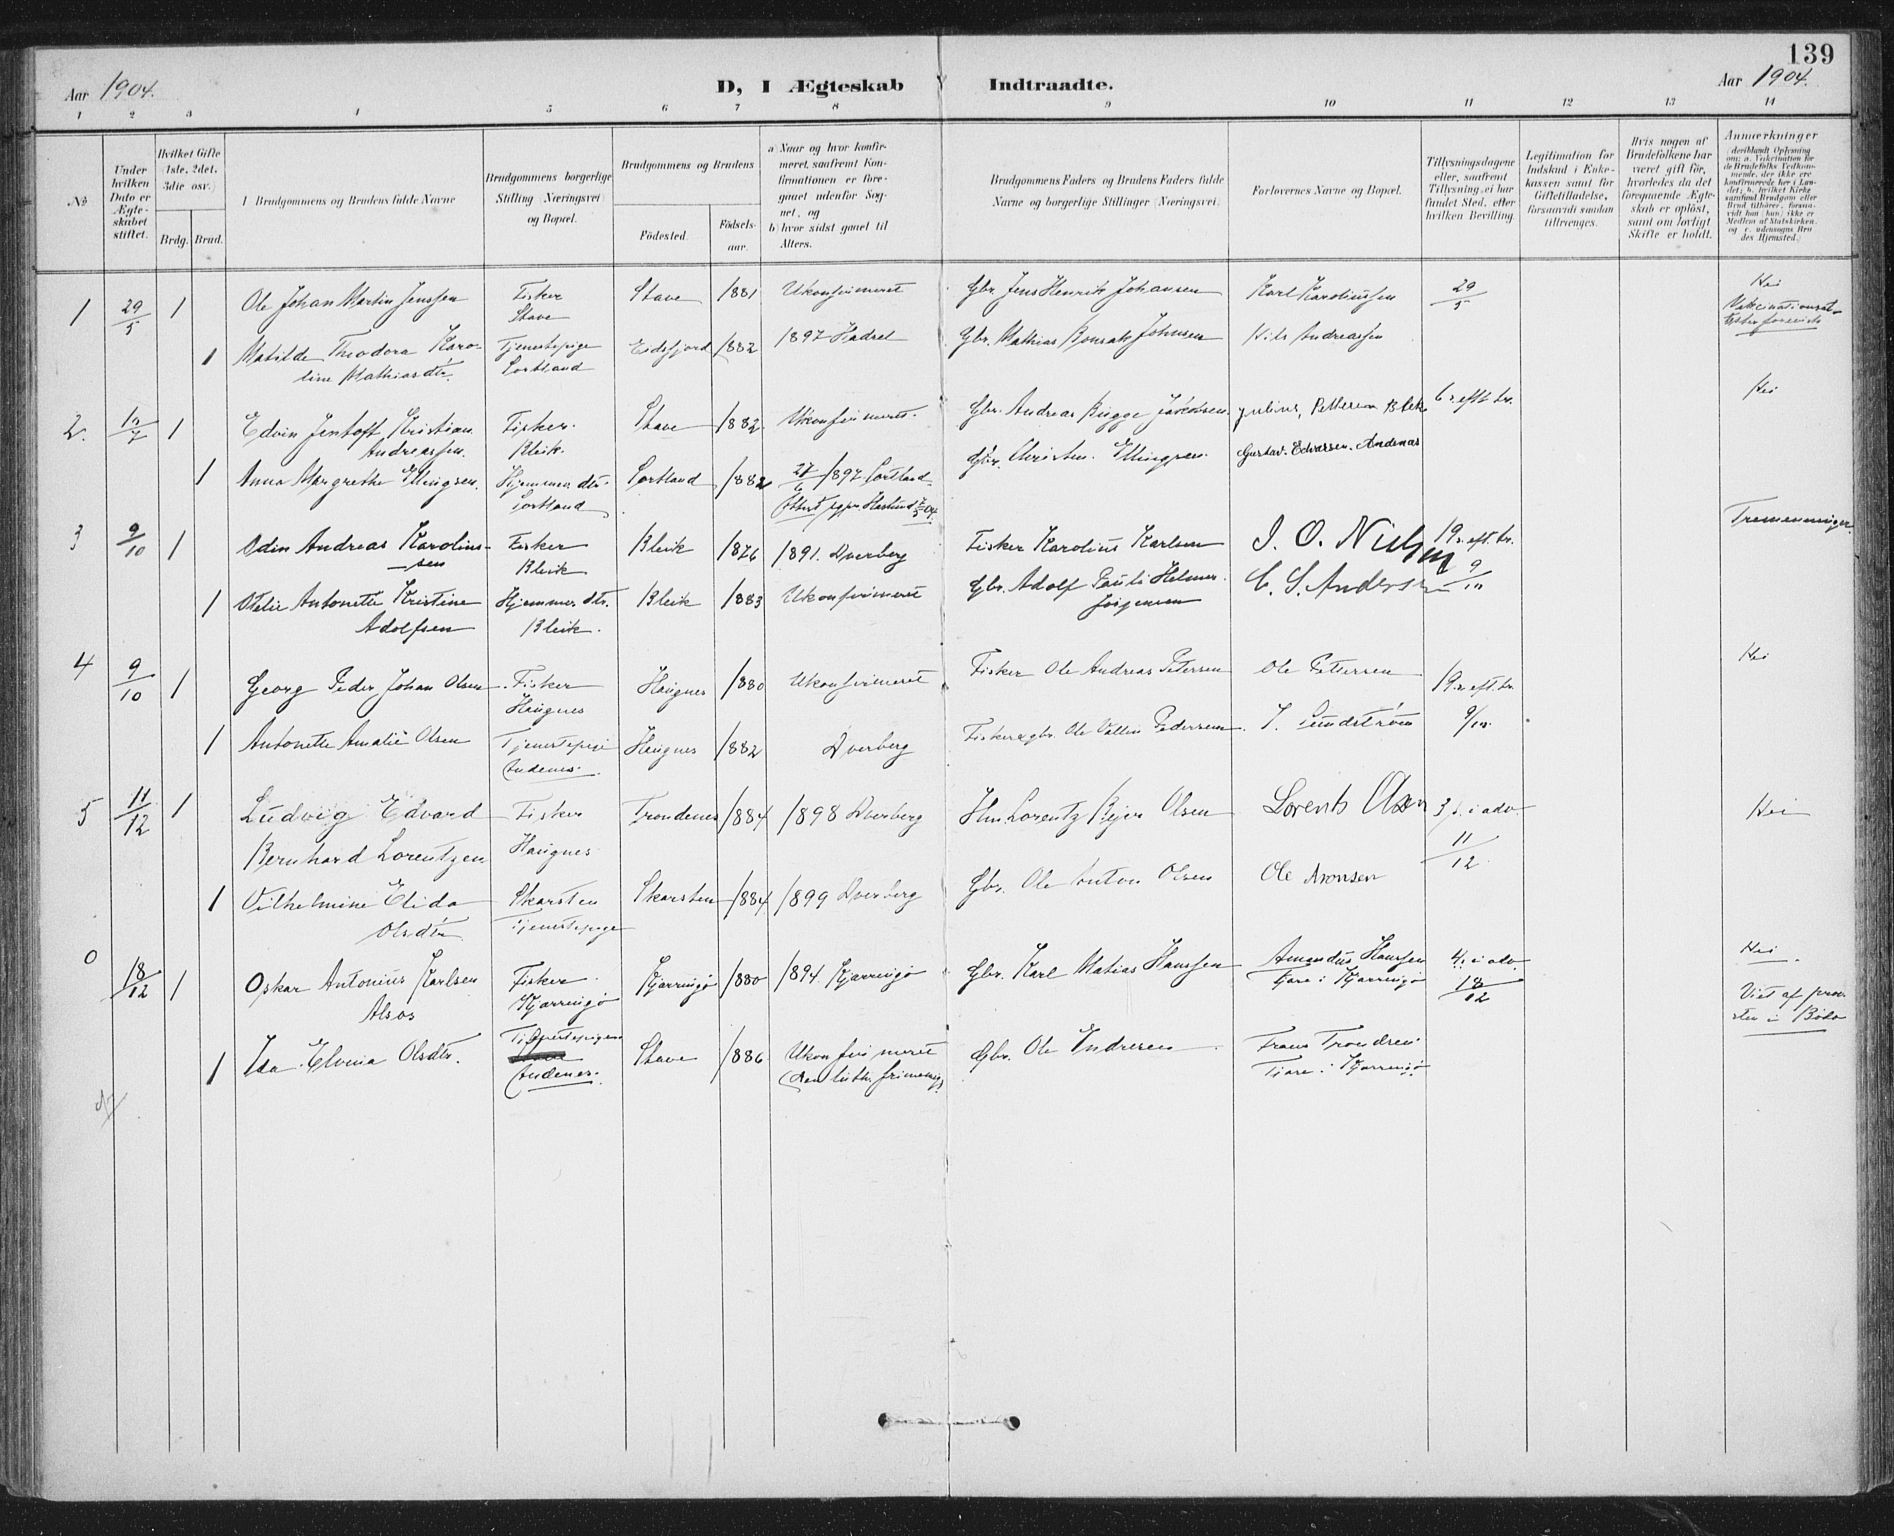 139
Aar 1904.
D, I Ægteskab Indtraadte.
Aar 1904.
1 2 3 4 5 6 7 8 9 10 11 12 13 14
No
Under hvilken Dato er Ægteskabet stiftet.
Hvilket Gifte (1ste, 2det, 3die osv.)
Brdg. Brud.
Brudgommens og Brudens fulde Navne
Brudgommens borgerlige Stilling (Næringsvei) og Bopæl.
Brudgommens og Brudens
Födested. Födsels-aar.
a) Naar og hvor konfirmeret, saafremt Konfirmationen er foregaaet udenfor Sognet, og
b) hvor sidst gaaet til Alters.
Brudgommens Faders og Brudens Faders fulde Navne og borgerlige Stillinger (Næringsvei)
Forlovernes Navne og Bopæl.
Tillysningsdagene eller, saafremt Tillysning ei har fundet Sted, efter hvilken Bevilling.
Legitimation for Indskud i Enkekassen samt for Giftetilladelse, forsaavidt saadan tiltrænges.
Hvis nogen af Brudefolkene har været gift för, hvorledes da det foregaaende Ægteskab er oplöst, samt om lovligt Skifte er holdt.
Anmærkninger
1 29/5 1 Ole Johan Martin Jenssen Fisker Stave Stave 1881 Ukonfirmeret Gbr. Jens Henrik Johansen Karl Karoliussen 29/5 Nei
1 Matilde Theodora Karoline Mathiasdtr. Tjenestepige Sortland Eidsfjord 1882 1897 Hadsel Gbr. Mathias Johnsen Nils Andreassen
2. 1 Edvin Jentoft Kristian Andreassen. Fisker. Bleik. Stave 1882. Ukonfirmeret. Gbr. Andreas Bugge Jakobsen. Julius, Pettersen Bleik Nei
1 Anna Margrethe Ellingsen. Hjemmev. dtr. Sortland Sortland 1882 27/6 1897 Sortland Gbr. Christen Ellingsen. Gustav. Edvarsen. Andenæs
3 9/10 1 Odin Andreas Karoliussen Fisker Bleik Bleik 1876 1891. Dverberg Fisker Karolius Karlsen J. O. Nielsen 19. eft. tr. Tremenninger
1 Otelie Antonette Kristine Adolfsen Hjemmev. dtr. Bleik. Bleik 1883 Ukonfirmeret Gbr. Adolf Pauli Helmer Jörgensen C. S. Andersen 9/10
4 9/10 1 Georg Peder Johan Olsen Fisker Haugnes Haugnes 1880 Ukonfirmeret Fisker Ole Andreas Petersen Ole Pettersen 19. eft. tr. Nei
1 Antonette Amalie Olsen Tjenestepige Andenes. Haugnes 1882 Dverberg Fisker & gbr. Ole Pedersen J. Lundström 9/10.
5 11/12 1 Ludvig Edvard Bernhard Lorentzen Fisker Haugnes Trondenes 1884 1898 Dverberg Lorentz Olsen Lorents Olsen 3. i adv. 11/12. Nei
1 Vilhelmine Elida Olsdtr. Skarsten Tjenestepige Skarsten 1884 1899 Dverberg Gbr. Ole Anton Olsen Ole Aronsen
0 18/12 1 Oskar Antonius Karlsen Alsos Fisker Kjerringö Kjerringö 1880 1894. Kjerringö Gbr. Karl Matias Hanssen Amandus Hanssen Fjære i Kjerringö 4. i adv. 18/12 Nei. Viet af presten i Bodö
1 Ida Elvina Olsdtr. Tjenestepige Andenes. Stave 1886 Ukonfirmeret (den luth. frimenig.) Gbr. Ole Indresen Frans Trondsen Fjære i Kjerringö